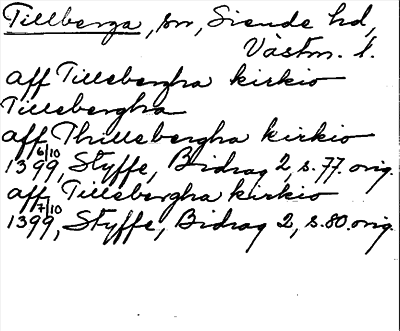 Tillberga, sn, Siende hd,
Västm. l.
aff Tillebergha kirkio
Tillebergha
aff Thillebergha kirkio
1399 6/10, Styffe, Bidrag 2, s. 77. orig.
aff Tillebergha kirkio
1399 7/10, Styffe, Bidrag 2, s. 80. orig.